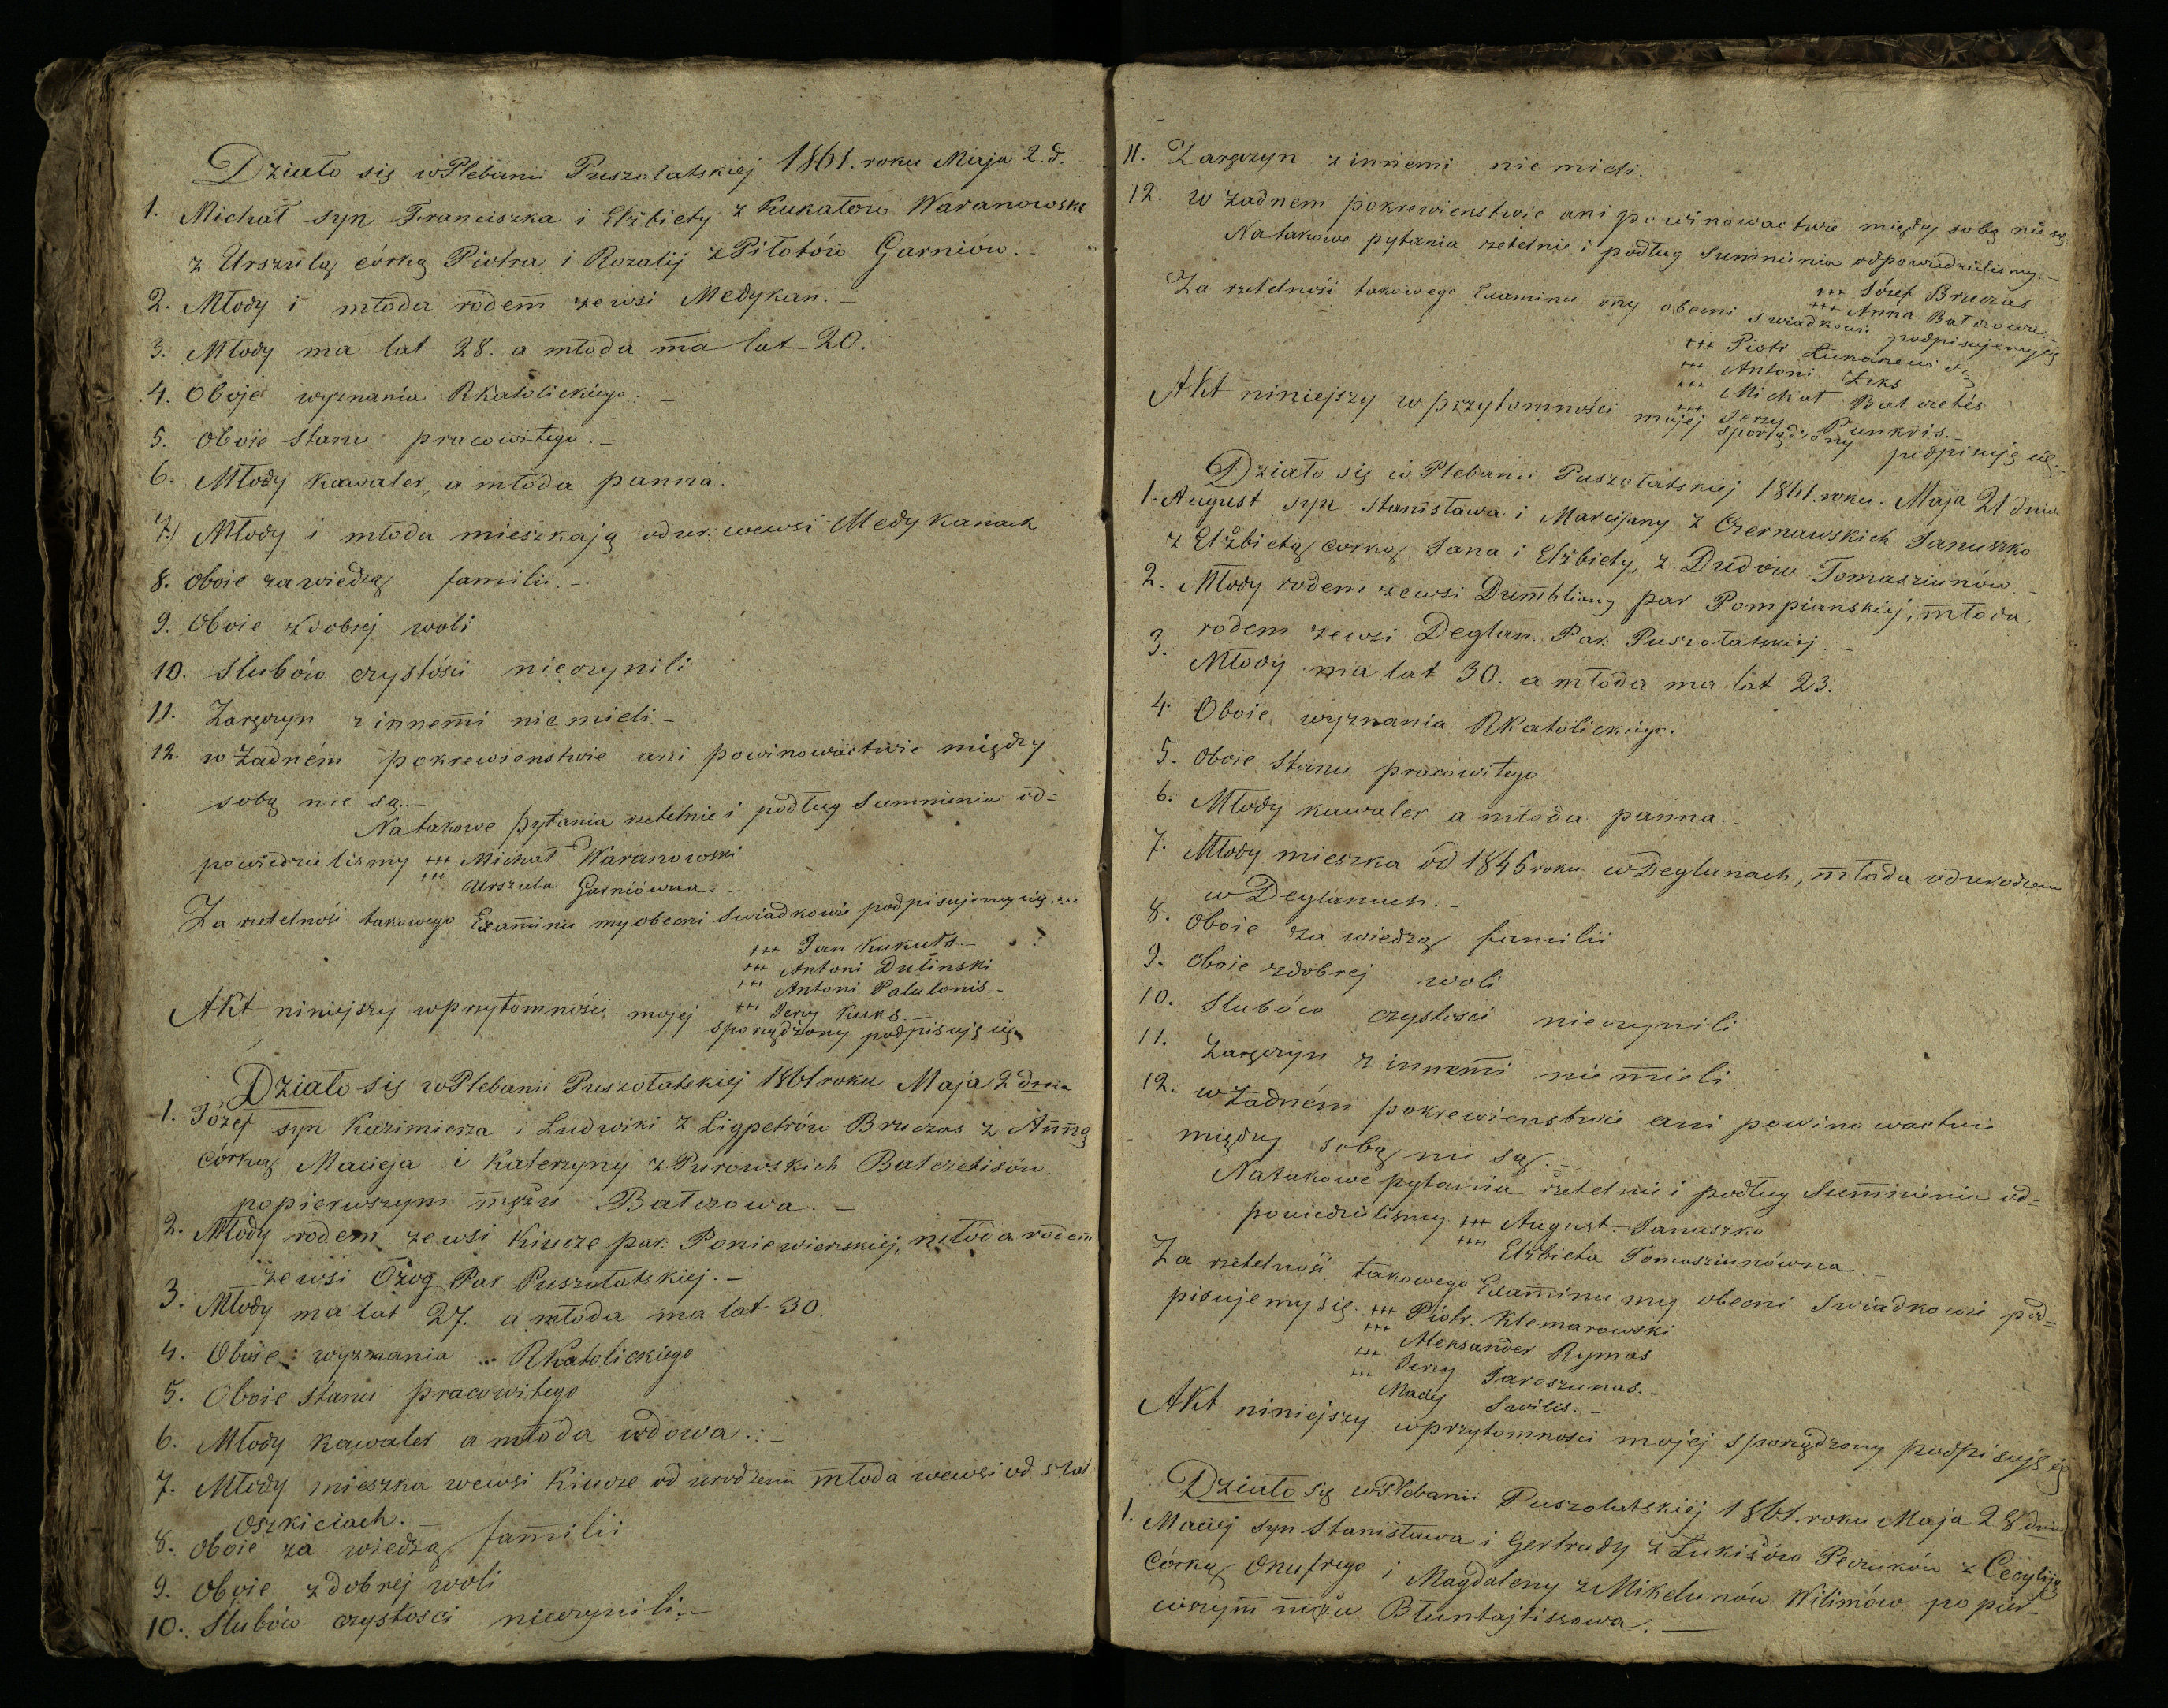 Działo się w Plebanii Puszołatskiej 1861. roku Maja 2. d.
1. Michał syn Franciszka i Elżbiety z Kukałow Waranowske
z Urszulą córką Piotra i Rozalij z Piłotów Garniów.
2. Młody i młoda rodem ze wsi Medykan. –
3. Młody ma lat 28. a młoda ma lat 20.
4. Oboje wyznania RKatolickiego. –
5. Oboie Stanu pracowitego. –
6. Młody Kawaler, a młoda panna. –
7. Młody i młoda mieszkają od ur. we wsi Medykanach
8. Oboie za wiedzą familii. –
9. Oboie z dobrej woli
10. Slubów czystości nieczynili
11. Zaręczyn z innemi niemieli. –
12. w żadném pokrewienstwie ani powinowactwie między
sobą nie są. –
Na takowe pytania rzetelnie i podług Sumnienia od=
powiedzielismy +++ Michał Waranowski
+++ Urszula Garniówna. –
Za rzetelność takowego Examinu my obecni Swiadkowie podpisujemy się. ...
+++ Jan Kukuts –
+++ Antoni Dulinski
+++ Antoni Palulonis. –
+++ Jerzy Kuks. –
Akt niniejszy w przytomności mojej sporządzony podpisuję się
Działo się w Plebanii Puszołatskiej 1861 roku Maja 2 dnia
1. Józef syn Kazimierza i Ludwiki z Ligpetrów Bruczas z Anną
córką Macieja i Katerzyny z Purowskich Batczetisów
po pierwszym mężu Batczowa. –
2. Młody rodem ze wsi Kiucze par. Poniewierskiej, młoda rodem
ze wsi Ożog Par Puszołatskiej. –
3. Młody ma lat 27. a młoda ma lat 30.
4. Oboie wyznania RKatolickiego
5. Oboie Stanu pracowitego
6. Młody kawaler a młoda wdowa. –
7. Młody mieszka we wsi Kiucze od urodzenia młoda we wsi od 5 lat
Oszkiciach. –
8. Oboie za wiedzą familii
9. Oboie z dobrej woli
10. Slubów czystosci nieczynili. –
11. Zaręczyn z innemi niemieli.
12. w żadnem pokrewienstwie ani powinowactwie między sobą nie są.
Na takowe pytania rzetelnie i podług Sumnienia odpowiedzielismy. –
+++ Józef Bruczas
+++ Anna Batczowa. –
Za rzetelność takowego Examinu my obecni swiadkowie podpisujemy się
+++ Piotr Łukaszewicz
+++ Antoni Zeks
+++ Michał Batczetis
+++ Jerzy Punkris. –
Akt niniejszy w przytomności mojej sporządzony podpisuję się. –
Działo się w Plebanii Puszołatskiej 1861. roku. Maja 21 dnia
1. August syn Stanisława i Marcijany z Czernawskich Januszko
z Elżbietą corką Jana i Elżbiety, z Dudów Tomasziunów. –
2. Młody rodem ze wsi Dumbliony par Pompianskiej, młoda
rodem ze wsi Deglan. Par. Puszołatskiej. –
3. Młody ma lat 30. a młoda ma lat 23.
4. Oboie wyznania RKatolickiego.
5. Oboie Stanu pracowitego.
6. Młody kawaler a młoda panna. –
7. Młody mieszka od 1845 roku w Deglanach, młoda od urodzenia
w Deglanach. –
8. Oboie za wiedzą familii
9. Oboie z dobrej woli
10. Slubów czystości nieczynili
11. Zaręczyn z innemi niemieli.
12. w żadném pokrewienstwie ani powinowactwie
między sobą nie są. –
Na takowe pytania rzetelnie i podług Sumnienia od=
powiedzielismy +++ August Januszko
+++ Elżbieta Tomasziunówna. –
Za rzetelność takowego Examinu my obecni Swiadkowie pod=
pisujemy się. +++ Piotr. Klemarowski
+++ Aleksander Rymas
+++ Jerzy Jaroszunas. –
+++ Maciej Savilis. –
Akt niniejszy w przytomności mojej sporządzony podpisuję się
Działo się w Plebanii Puszołatskiej 1861. roku Maja 28 dnia
1. Maciej syn Stanisława i Gertrudy z Łukiżów Peczuków z Cecyliją
Córką Onufrego i Magdaleny z Mikelunów Wilimów po pier-
wszym mężu Bluntajtiszowa. –